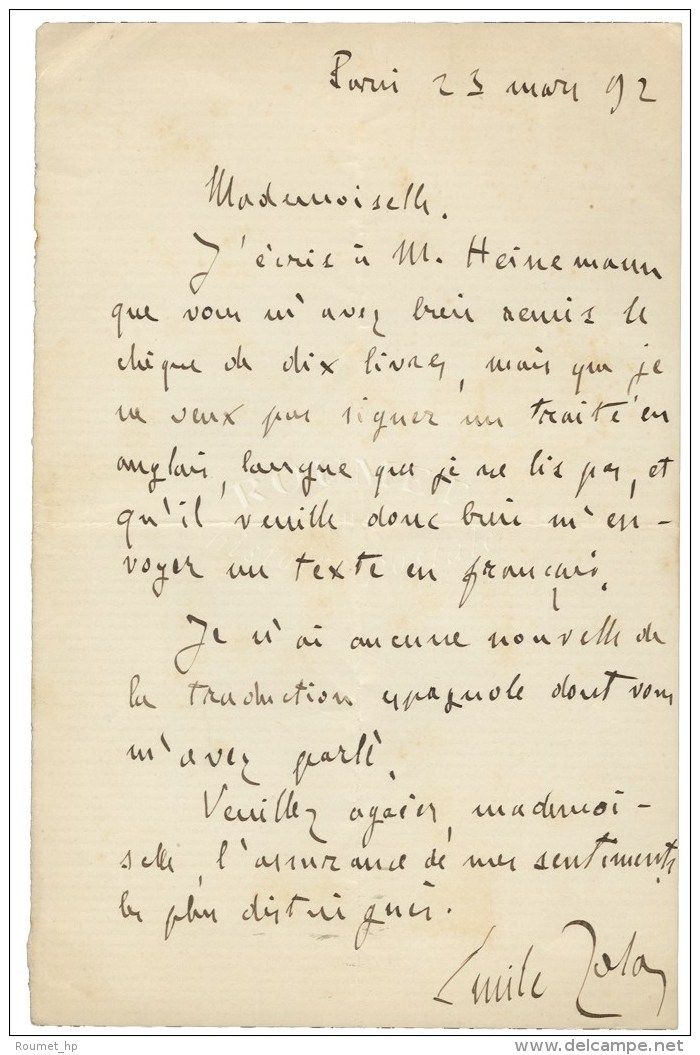 Paris 23 mars 92
Mademoiselle.
J'écris à M. Heinemann
que vous m'avez bien remis le
chèque de dix livres, mais que je
ne veux pas signer un traité en
anglais, langue que je ne lis pas, et
qu'il veuille donc bien m'en-
voyer un texte en français.
Je n'ai aucune nouvelle de
la traduction espagnole dont vous
m'avez parlé.
Veuillez agréer, mademoi-
selle, l'assurance de mes sentiments
les plus distingués.
Emile Zola
Roumet_hp
delcampe.net